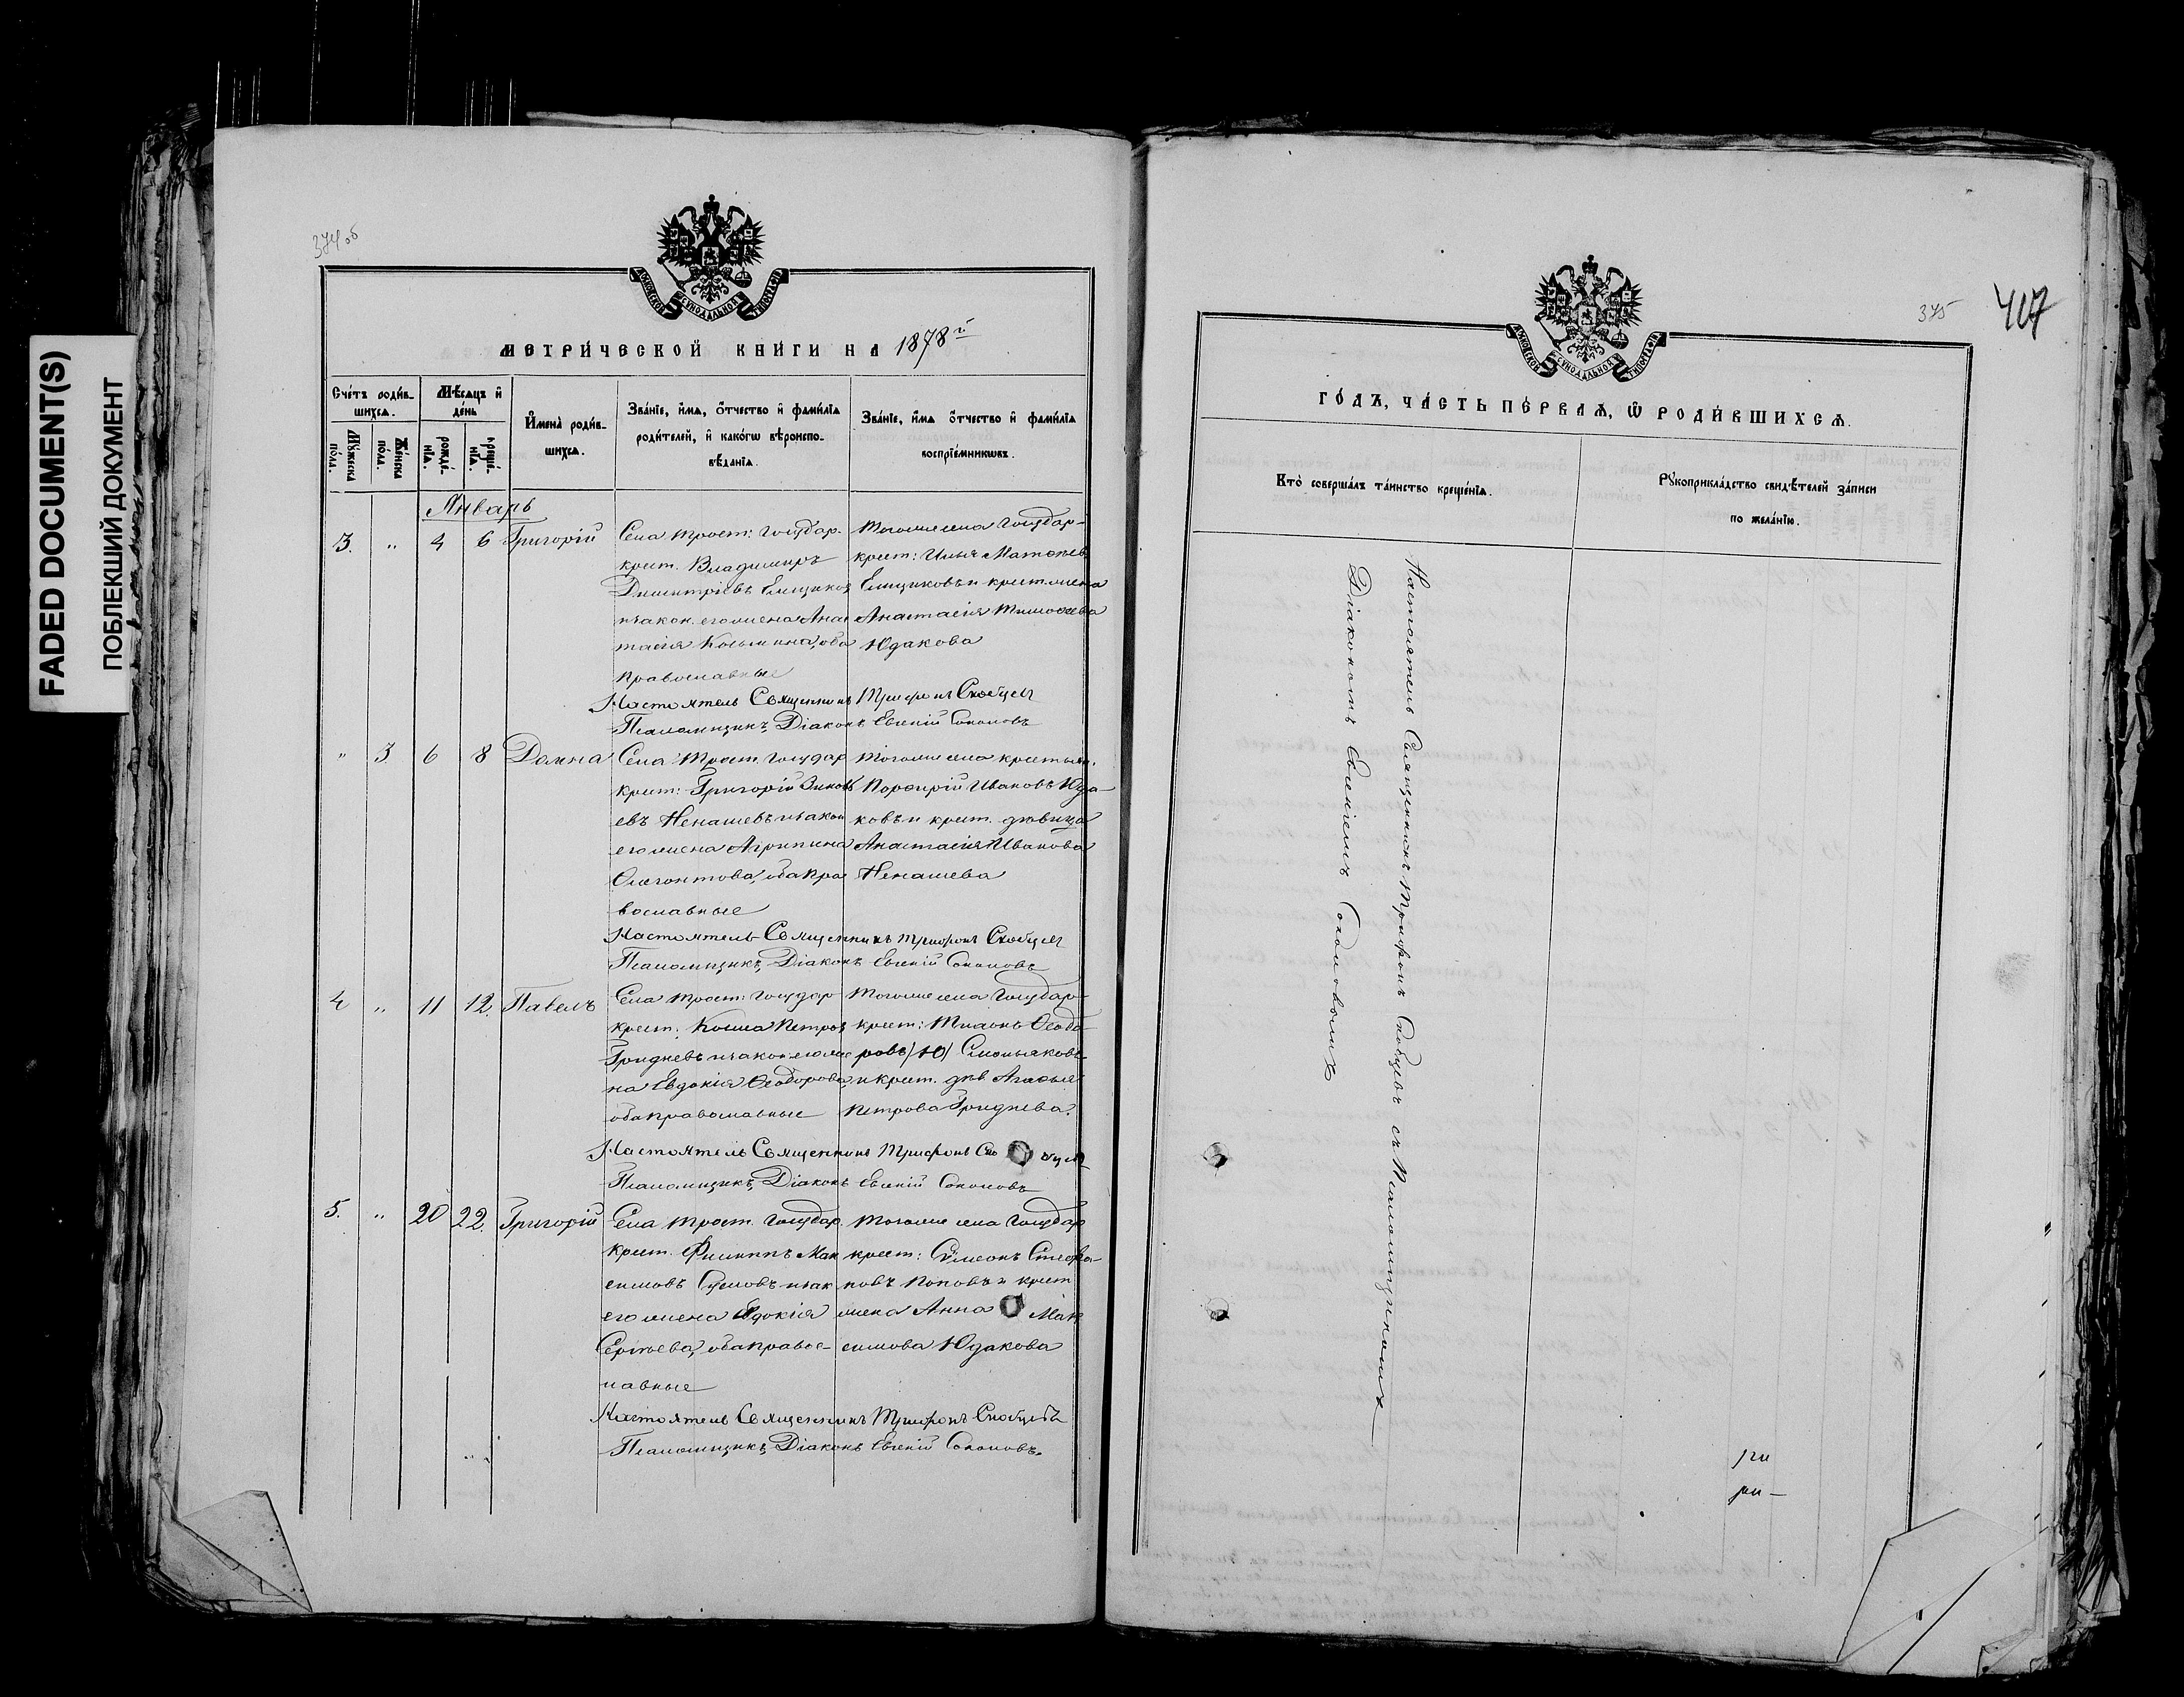 FADED DOCUMENT(S)
ПОБЛЕКШИЙ ДОКУМЕНТ
374 об
МОСКОВСКОЙ СѴНОДАЛЬНОЙ ТИПОГРАФІИ
МЕТРИ́ЧЕСКОЙ КНИ́ГИ НА 1878 й
Сче́тъ роди́в-
шихсѧ.
Мѣ́сѧцъ и҆
де́нь
И҆мена̀ роди́в-
шихсѧ.
Зва́нїе, и҆́мѧ, ѻ҆́тчество и҆ фами́лїѧ
роди́телей, и҆ како́гѡ вѣроиспо-
вѣ́данїѧ.
Зва́нїе, и҆́мѧ ѻ҆́тчество и҆ фами́лїѧ
воспрїе́мникѡвъ.
Мꙋ́жеска
по́ла.
Же́нска
по́ла.
рожде́-
нїѧ.
креще́-
нїѧ.
Январь
3. " 4 6 Григорій
Села Трост: Государ.
крест. Владиміръ
Димитріевъ Емщиков
и закон. его жена Анас
тасія Косьмина, оба
православные
Тогоже села Государ-
крест: Илья Матвѣев
Емщиковъ и крест. жена
Анастасія Тимофеева
Юдакова
Настоятель Священникъ Трифонъ Скобцевъ
Псаломщикъ, Діаконъ Евгеній Соколовъ
" 3 6 8 Домна
Села Трост. Государ
крест: Григорій Зинов
евъ Ненашевъ и закон
его жена Агрипина
Флегонтова, оба пра
вославные
Тогоже села крестьян.
Порфирій Ивановъ Юда-
ковъ и крест. дѣвица
Анастасія Иванова
Ненашева
Настоятель Священникъ Трифонъ Скобцевъ
Псаломщикъ, Діаконъ Евгеній Соколовъ
4 " 11 12. Павелъ
Села Трост: Государ
крест: Косма Петров
Гридневъ и закон его же
на Евдокія Ѳеодорова,
оба православные
Тогоже села Государ-
крест: Ѳеодо-
ровъ /Ю/
и крест. дѣв Агафья
Петрова Гриднева.
Настоятель Священникъ Трифонъ Ско бцевъ
Псаломщикъ, Діаконъ Евгеній Соколовъ
5. " 20 22. Григорій
Села Трост. Государ.
крест. Филиппъ Мак
симовъ и зак
его жена Евдокія
Сергѣева, оба правос-
лавные
Тогоже села Государ
крест: Сѵмеонъ Стефа-
новъ Поповъ и крест
жена Анна Мак
симова Юдакова
Настоятель Священникъ Трифонъ Скобцевъ
Псаломщикъ, Діаконъ Евгеній Соколовъ.
375
407
МОСКОВСКОЙ СѴНОДАЛЬНОЙ ТИПОГРАФІИ
ГО́ДЪ, ЧА́СТЬ ПЕ́РВАѦ, Ѡ҆ РОДИ́ВШИХСѦ.
Кто̀ соверша́лъ та́инство креще́нїѧ.
Рꙋкоприкла́дство свидѣ́телей за́писи
по жела́нїю.
Настоятель Священникъ Трифонъ Скобцевъ съ Псаломщикомъ
Діакономъ Евгеніемъ Соколовымъ